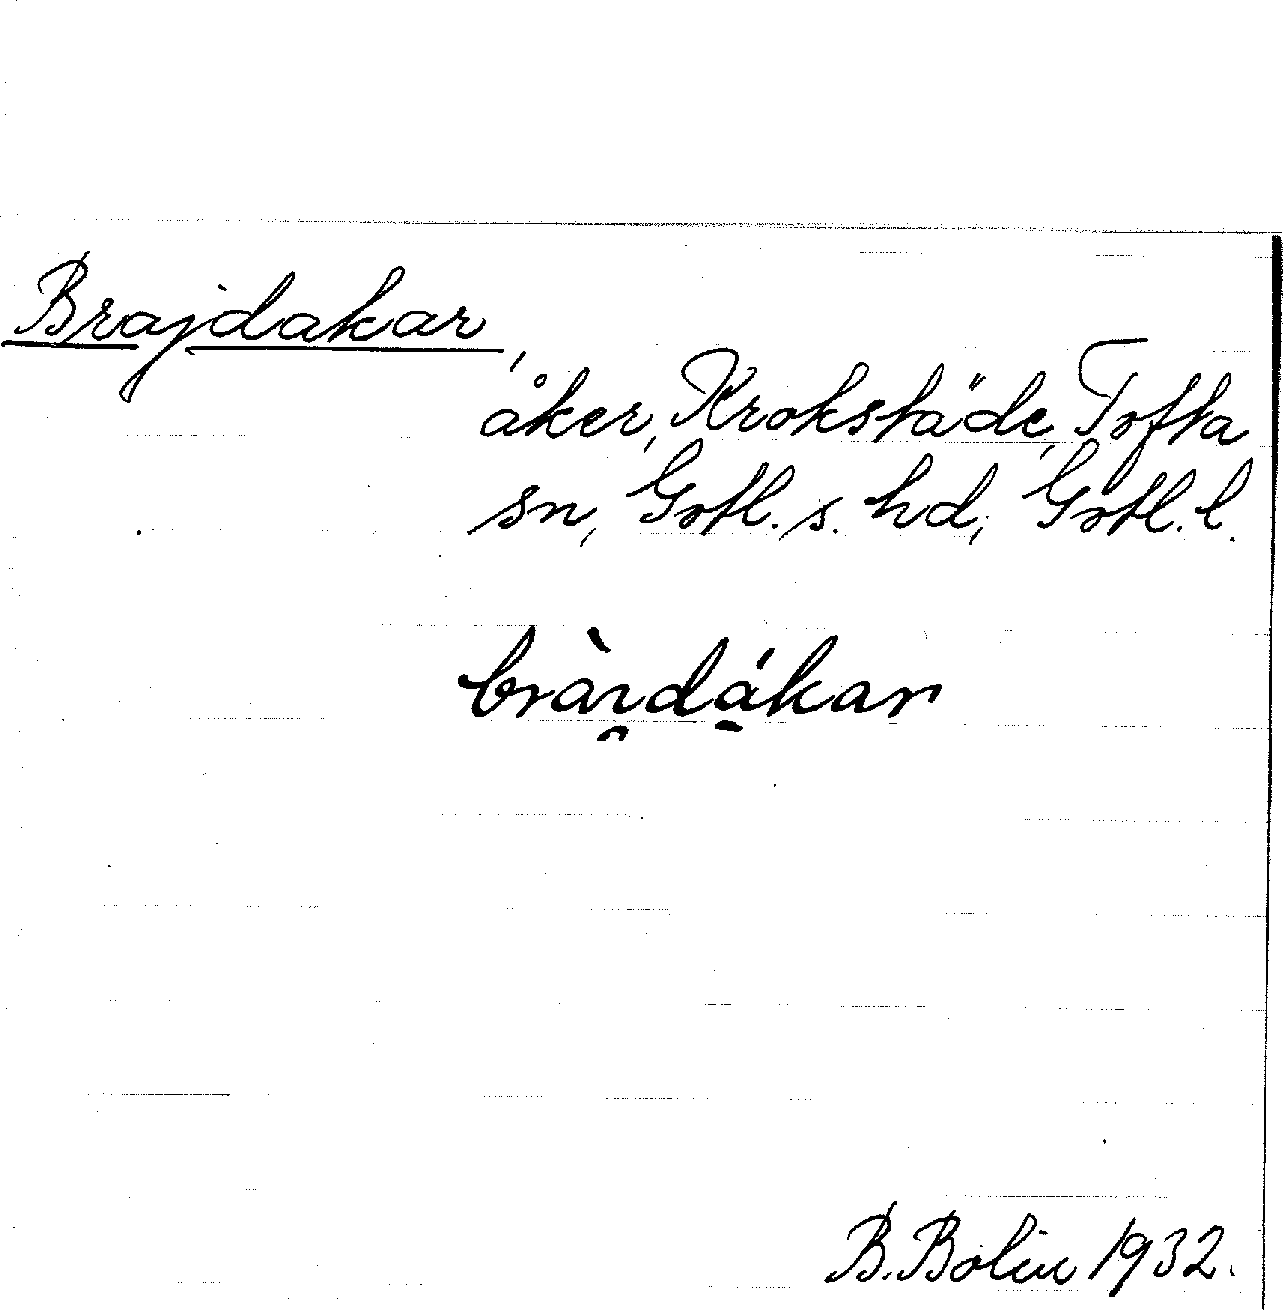 Brajdakar,
åker, Krokstäde, Tofta
sn, Gotl. s. hd, Gotl. l.
bràı̯dá̠kar
B. Bolin 1932.